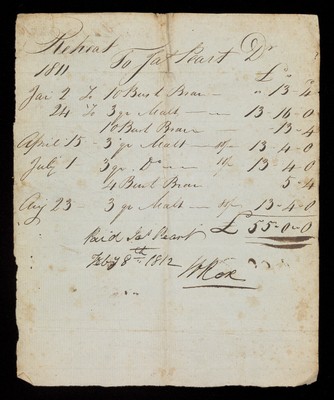 To Jas Peart Dr
1811
£ " "
Jan 2 To 10 Bush Bran — " 13-4
24 To 3 qr Malt — 13-16-0
10 Bush Bran — - 13-4
April 15 - 3 qr Malt — 13-4-0
July 1 3 qr Do — 13 4-0
4 Bush Bran 5-4
Aug 23 - 3 qr Malt — 13-4-0
£ 55-0-0
Paid Jas Peart
Feby 8th 1812
Cox